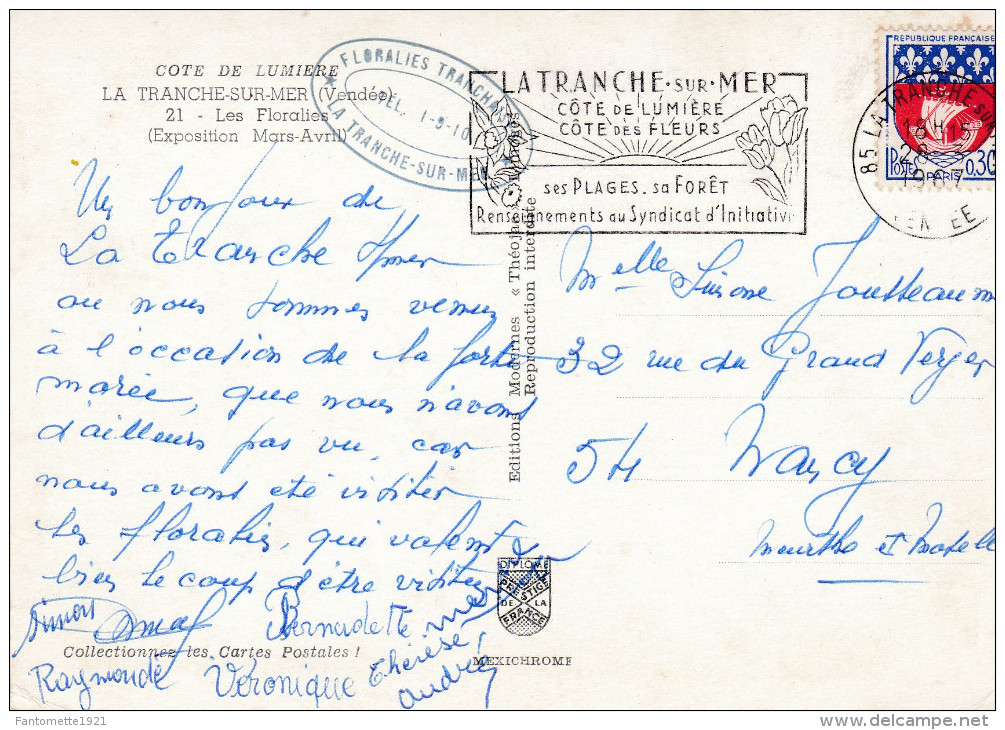 COTE DE LUMIERE
LA TRANCHE-SUR-MER (Vendée)
21 - Les Floralies
(Exposition Mars-Avril)
★ FLORALIES TRANCHAISES ★
TÉL. 1-9-10
LA TRANCHE-SUR-MER
LA TRANCHE-SUR-MER
CÔTE DE LUMIÈRE
CÔTE DES FLEURS
ses PLAGES. sa FORÊT
Renseignements au Syndicat d'Initiative
REPUBLIQUE FRANÇAISE
POSTES PARIS 0,30
85 LA TRANCHE-SUR-
18H15
1967
VENDEE
Un bonjour de
La Tranche s/mer
ou nous sommes venus
à l'occasion de la forte
marée, que nous n'avons
d'ailleurs pas vu, car
nous avons été visiter
les floralies, qui valent
bien le coup d'être visitées
Simon Bernadette
Raymonde Véronique Thérèse
André
Melle Simone Jousseaume
32 rue du Grand Verger
54 Nancy
Meurthe et Moselle
Editions Modernes « Théojac » Limoges
Reproduction interdite
DIPLOME
PRESTIGE
DE LA
FRANCE
MEXICHROME
Collectionnez les Cartes Postales !
Fantomette1921
delcampe.net